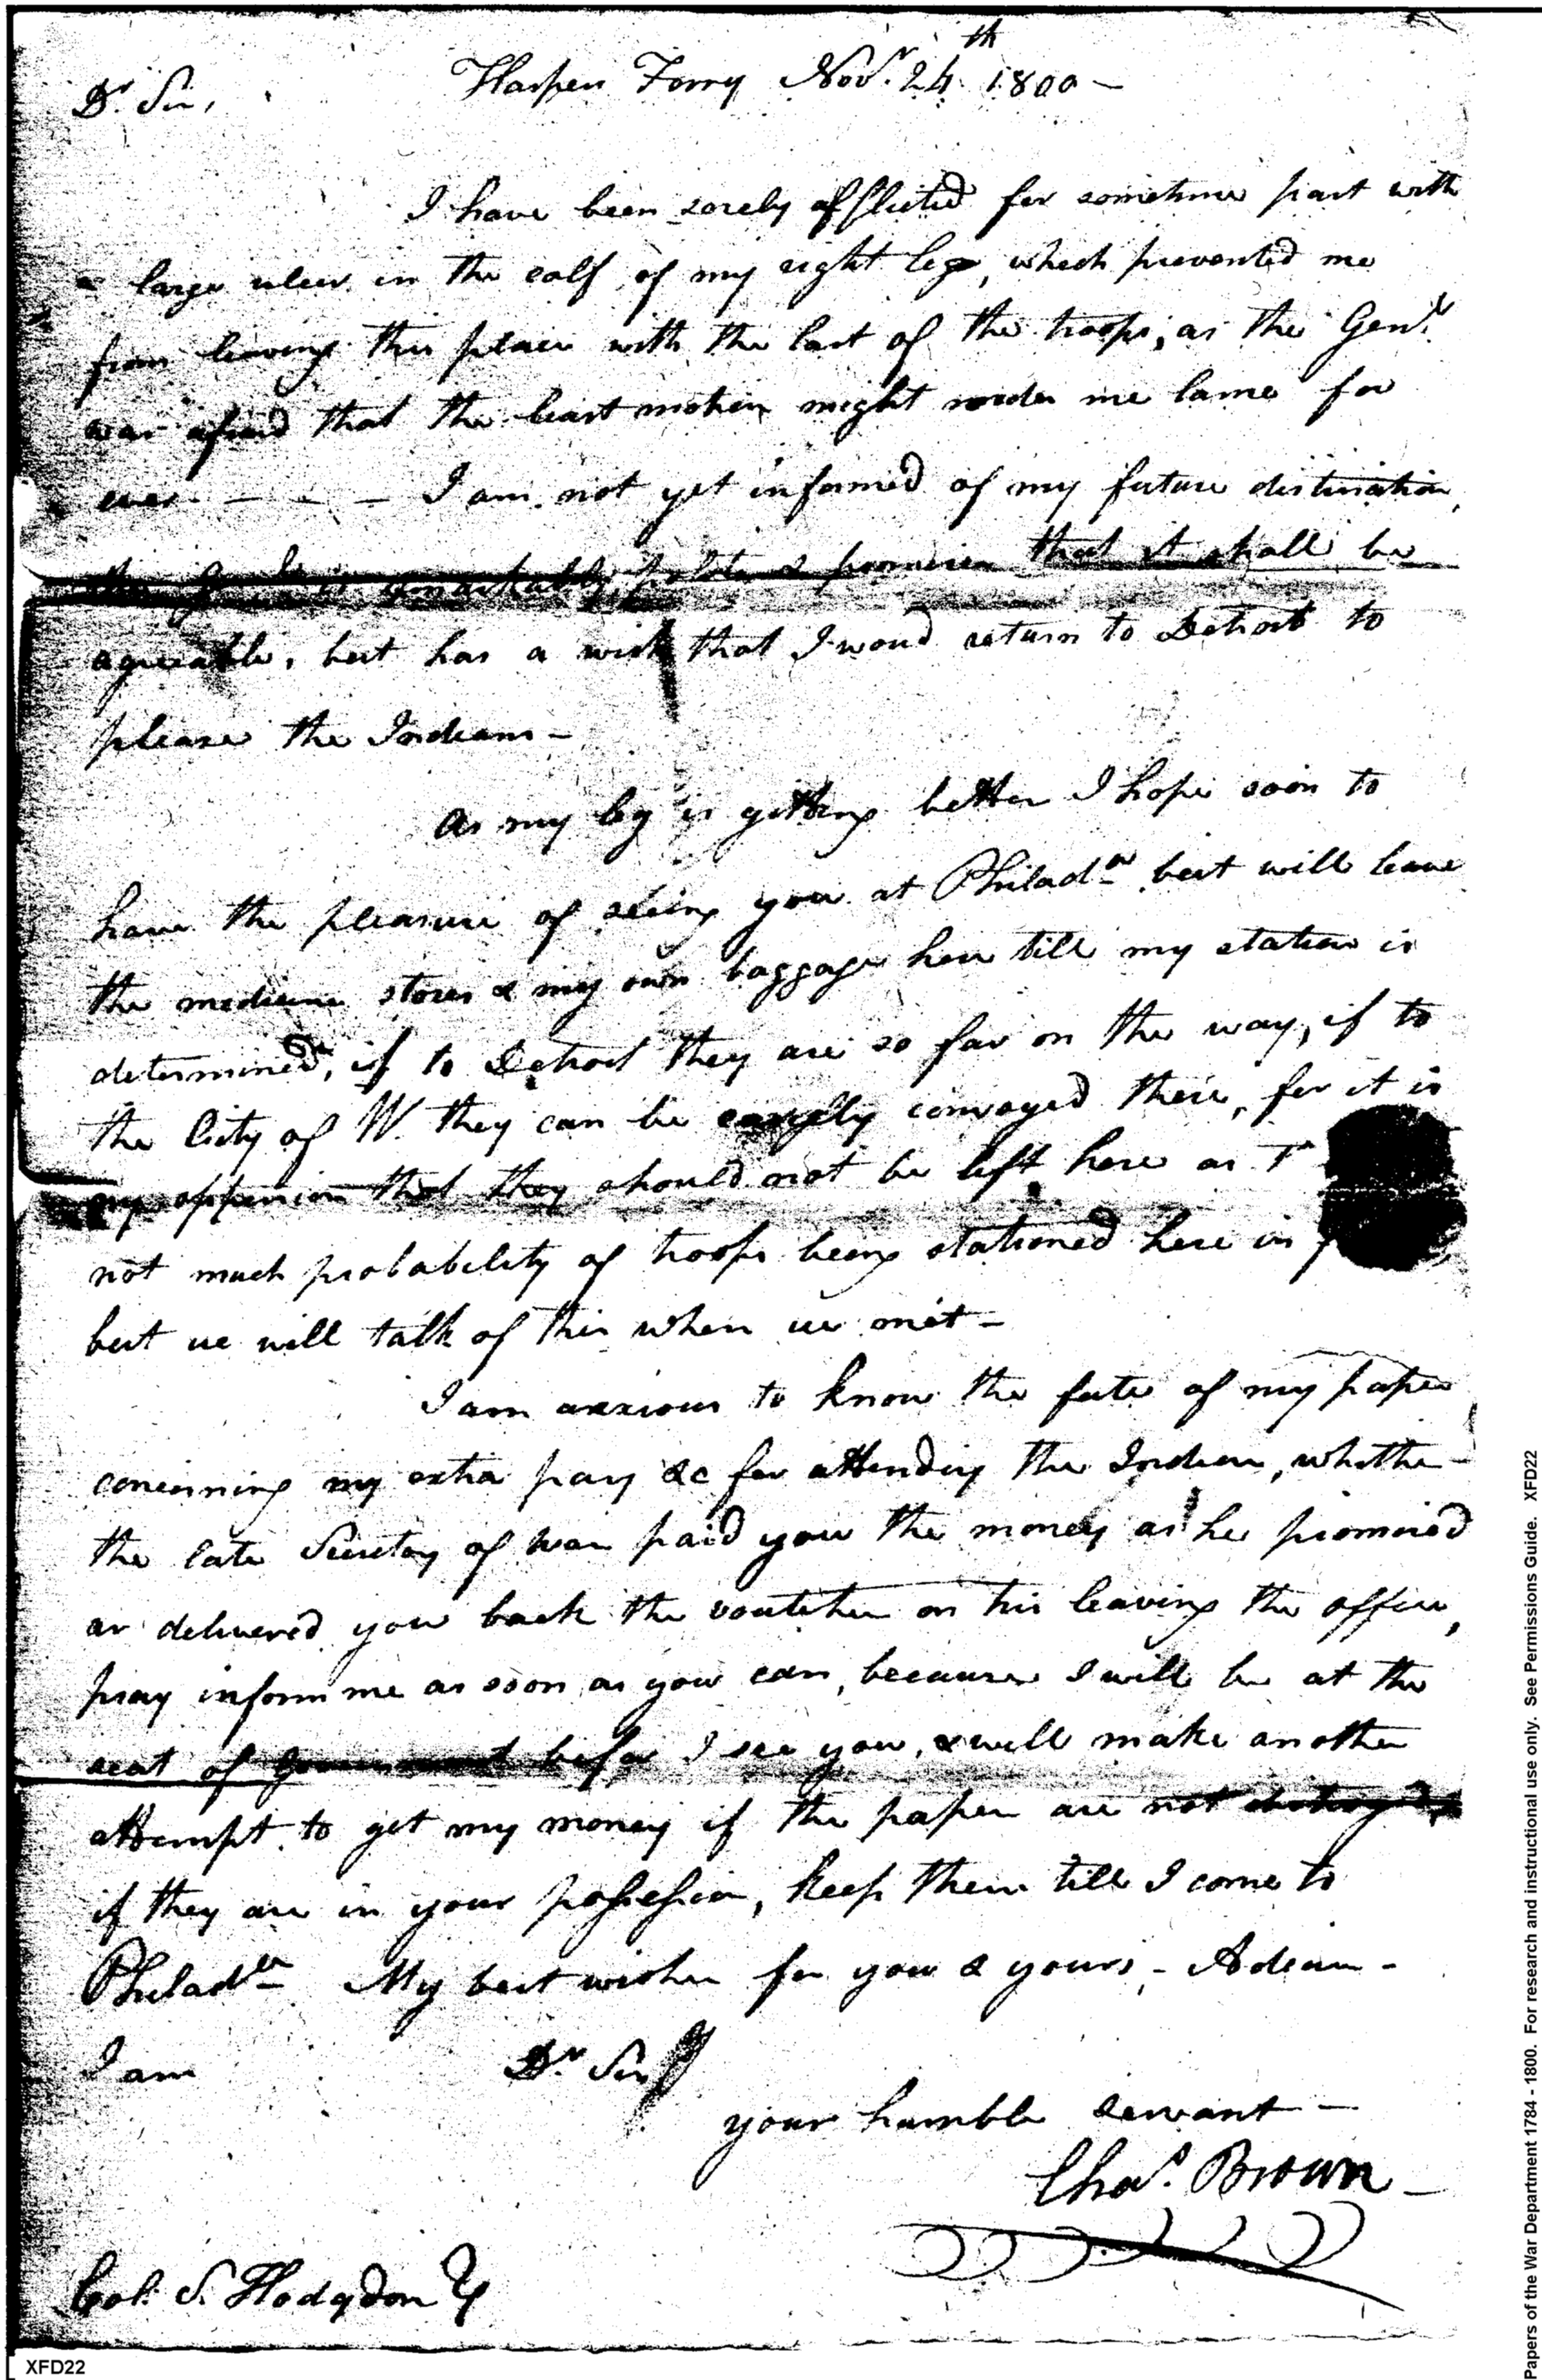 Harpers Ferry Novr. 24th 1800 —
Dr. Sir,
I have been sorely afflicted for sometime past with
a large ulcer in the calf of my right leg, which prevented me
from leaving this place with the last of the troops, as the Genl.
was afraid that the least motion might render me lame for
ever - - - - I am not yet informed of my future destination,
the Genl. is remarkably polite & promises that it shall be
agreeable, but has a wish that I woud return to Detroit to
please the Indians -
As my leg is getting better I hope soon to
have the pleasure of seeing you at Philada. but will leave
the medicine stores & my own baggage here till my station is
determined, if to Detroit they are so far on the way, if to
the City of W. they can be easily convoyed there, for it is
my oppinion that they should not be left here as
not much probability of troops being stationed here in
but we will talk of this when we met -
I am anxious to know the fate of my papers
concerning my extra pay &c for attending the Indians, whether
the late Secretary of war paid you the money as he promised
or delivered you back the voutchers on his leaving the office,
pray inform me as soon as you can, because I will be at the
seat of Government before I see you, & will make another
attempt to get my money if the papers are not destroyed,
if they are in your possession, keep them till I come to
Philada. My best wishes for you & yours, - Adieu -
I am Dr. Sir
your humble servant —
Chas. Brown —
Col. S. Hodgdon
XFD22
Papers of the War Department 1784 - 1800. For research and instructional use only. See Permissions Guide. XFD22